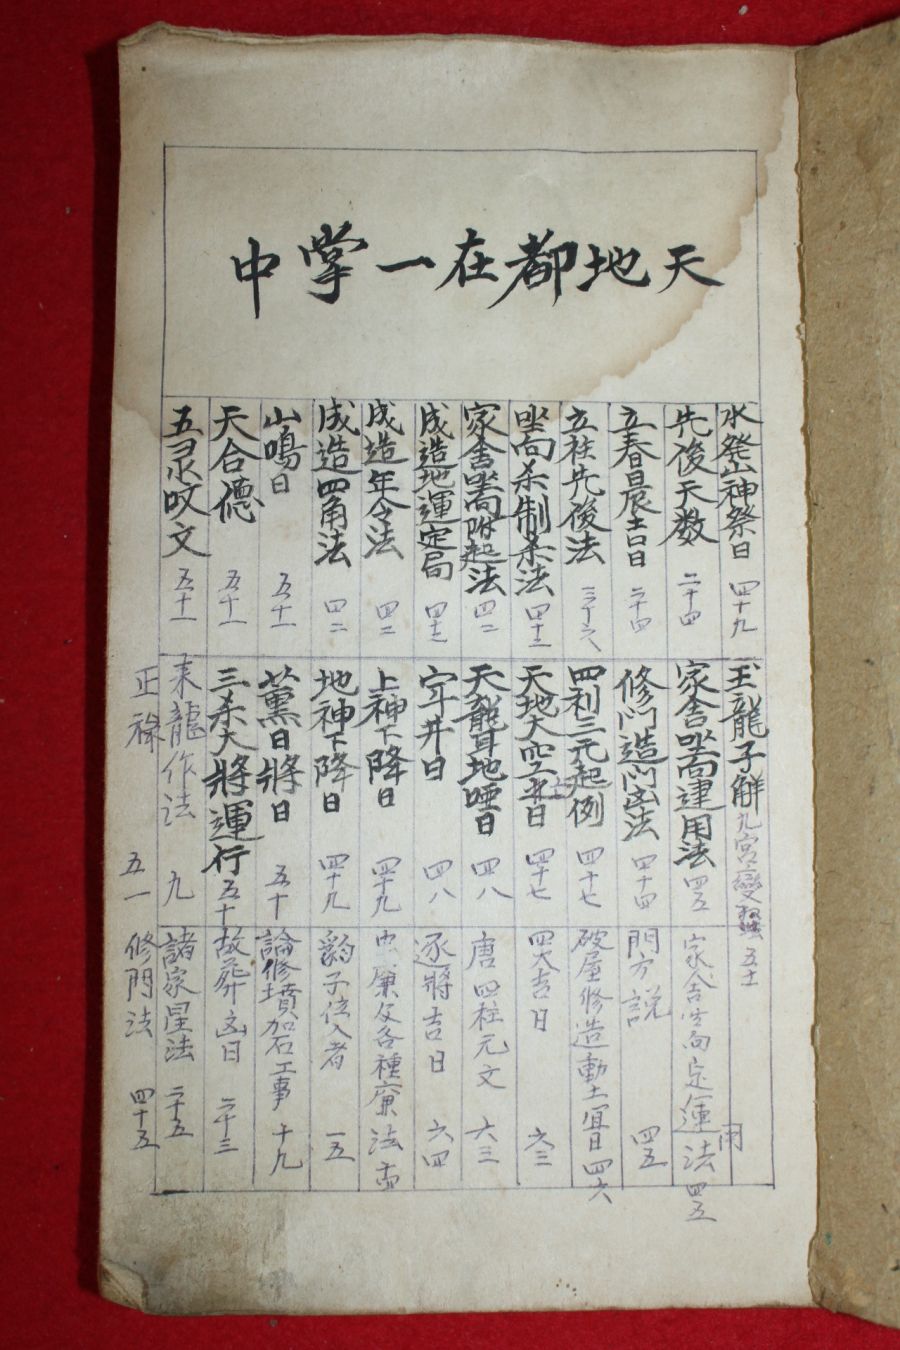 天地都在一掌中
水癹山神祭日 四十九
先後天数 二十四
立春晨吉日 二十四
立柱先後法 三十六
坐向杀制杀法 四十三
家舍坐向附起法 四二
成造地運定局 四十三
成造年令法 四二
成造四角法 四二
山鳴日 五十一
天合德 五十一
五灵呅文 五十一
玉龍子解 九宮變 五十一
家舍坐向建用法 四五
修門造門凶法 四十四
四利三元起例 四十七
天地大空亡日 四十七
天聾耳地啞日 四八
穿井日 四八
上神下降日 四十九
地神下降日 四十九
薰日將日 五十
三杀大將運行 五十
来龍作法 九
正祿 五一
用
家舍坐向定運法 四五
門方説 四五
破屋修造動土宜日 四六
四大吉日 六三
唐四柱元文 六三
逐將吉日 六四
廉及各種廉法
子位入者 一五
論修墳加石工事 十九
故葬凶日 二十三
諸家星法 二十五
修門法 四十五